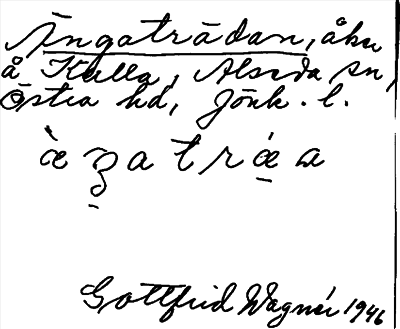 Ängaträdan, åker
å Kulla, Alseda sn,
Östra hd, Jönk. l.
Gottfrid Wagnér 1946